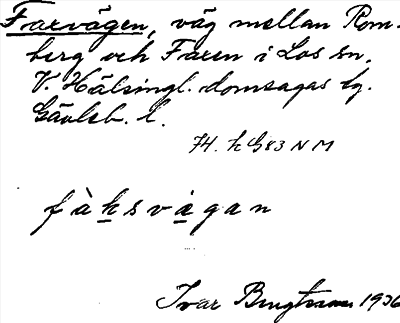 Faxvägen, väg mellan Rom-
berg och Faxen i Los sn,
V. Hälsingl. domsagas tg.
Gävleb. l.
74. h G83 N M
fàksvägan
Ivar Bengtsson 1936